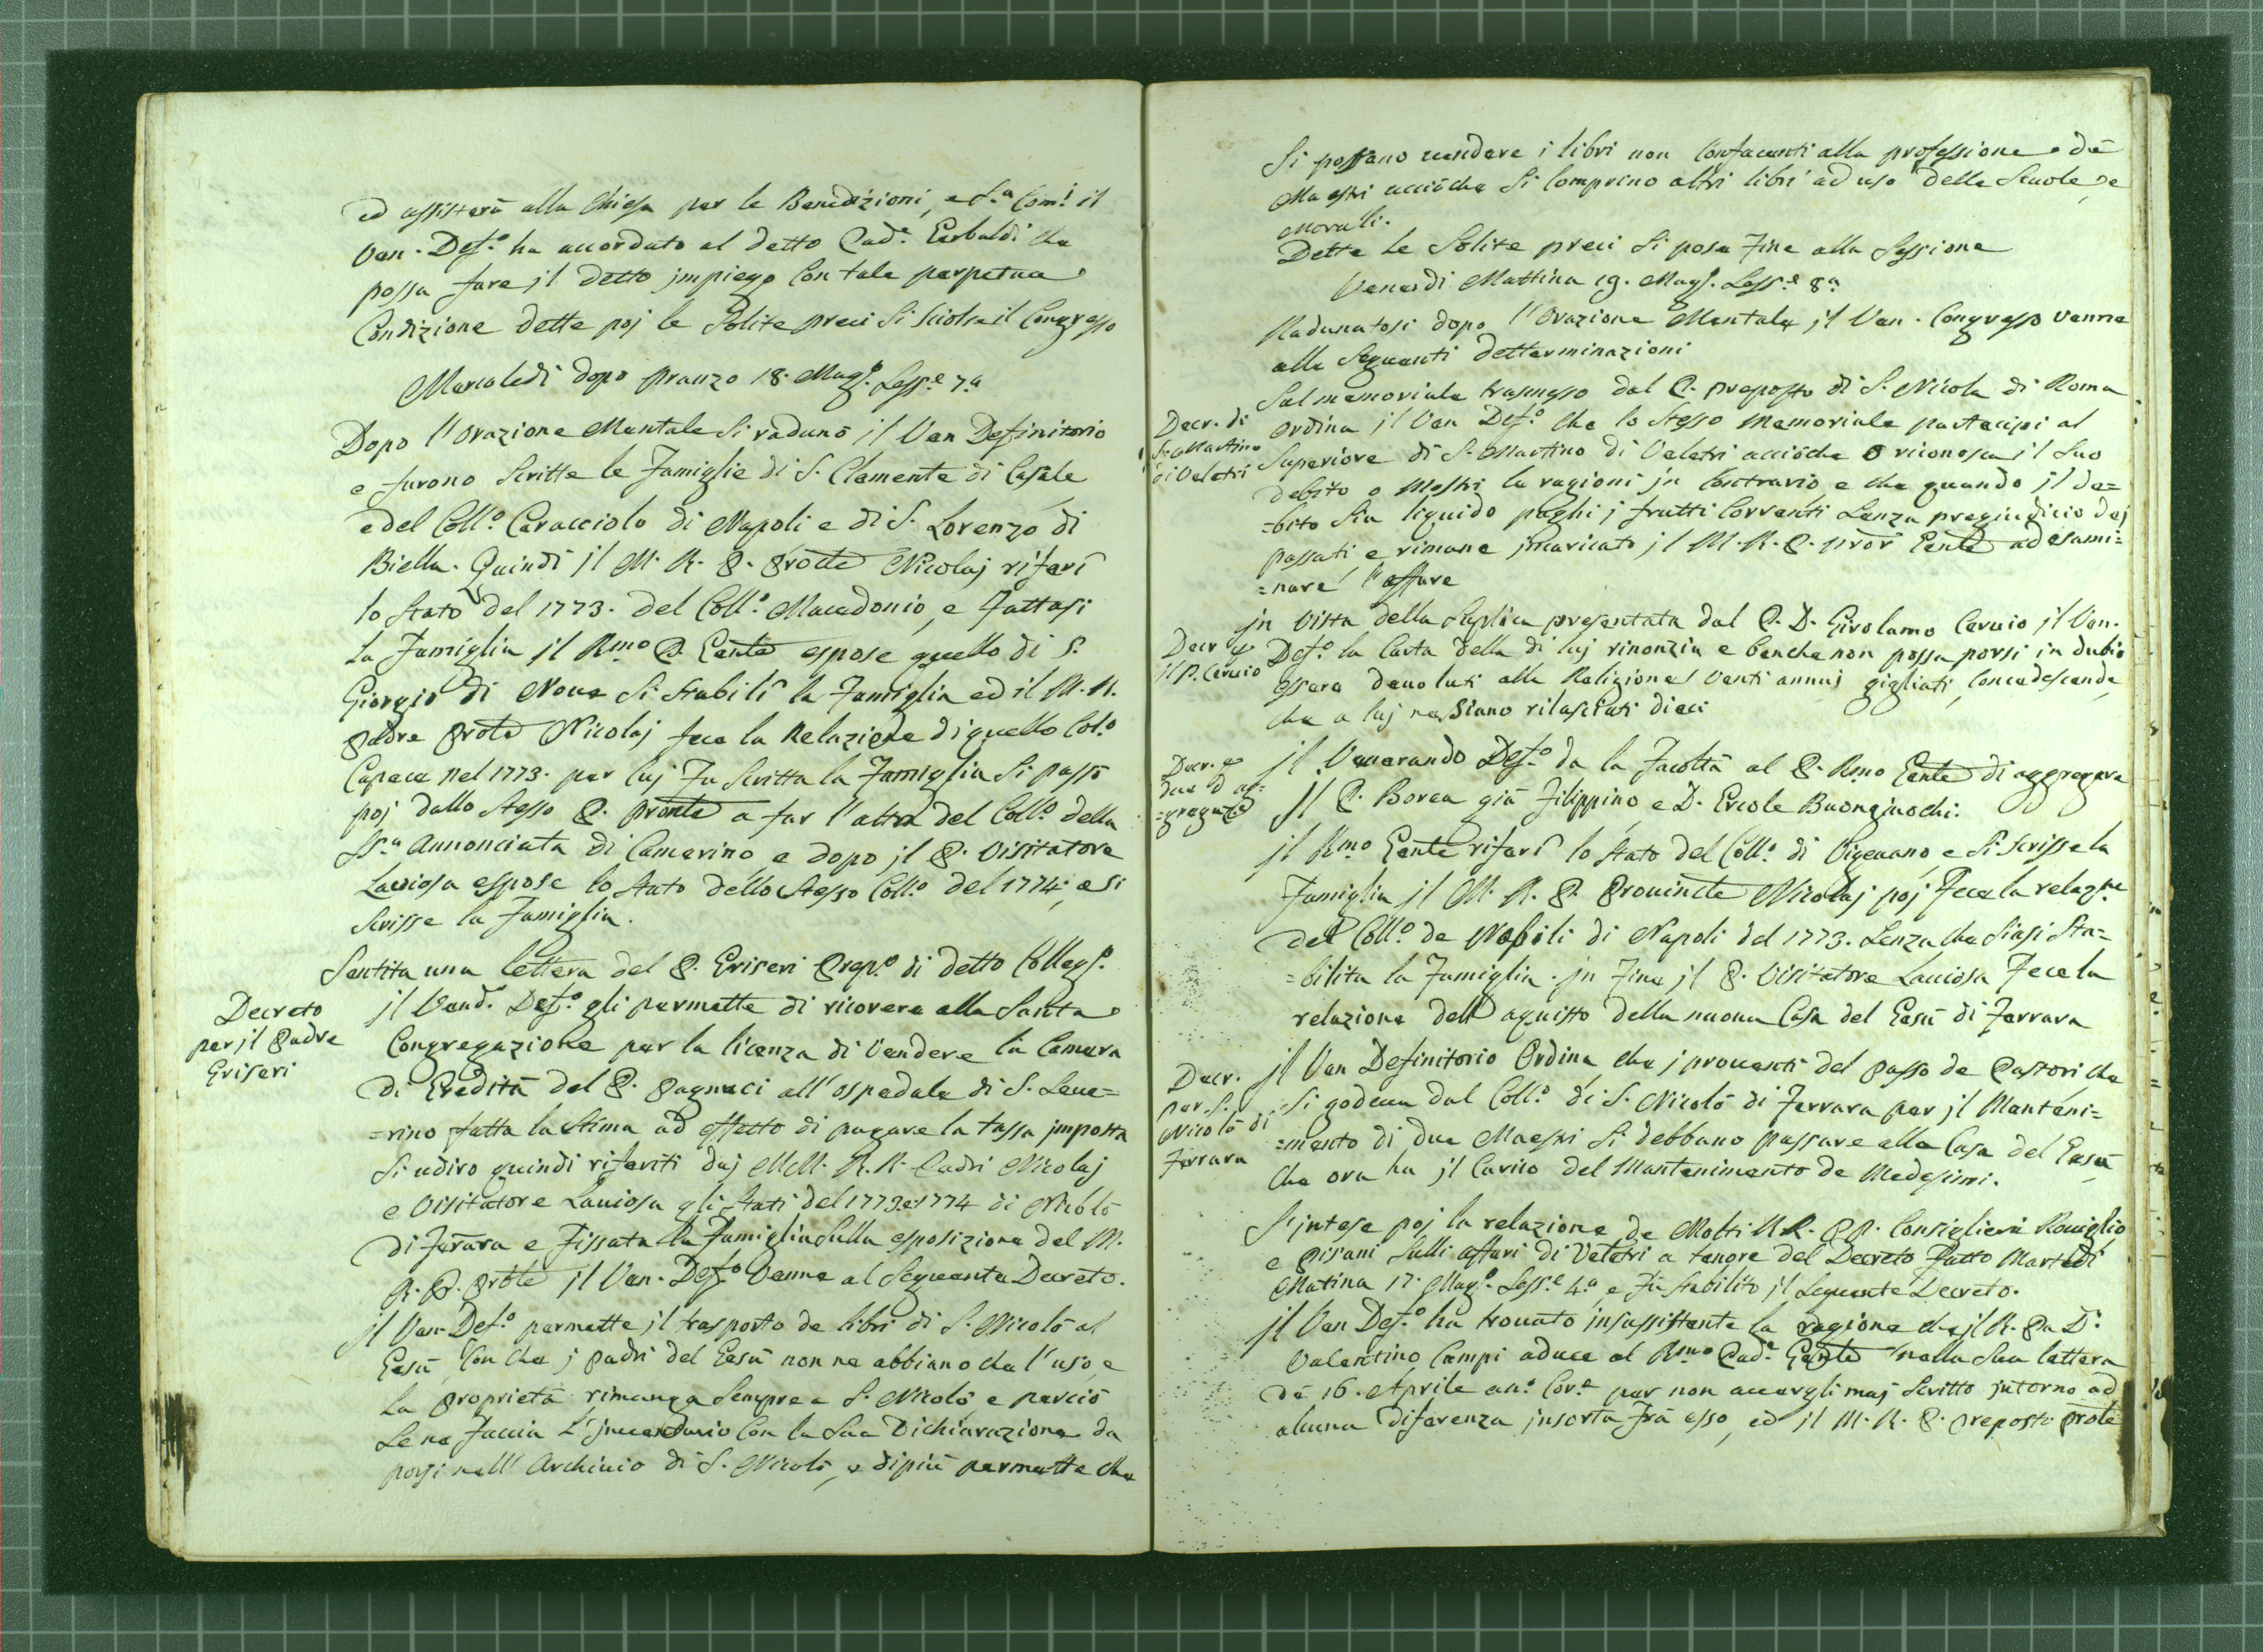 ed assisterà alla Chiesa per le Benedizioni, e S.a Com.i il
Ven. Def.o ha accordato al detto Pad.e Garbaldi che
possa fare jl detto jmpiego con tale perpetua
Condizione dette poj le Solite preci Si Sciolse il Congresso
Mercoledì dopo pranzo 18. Magg.o Sess.e 7.a
Dopo l'Orazione Mentale Si radunò jl Ven Definitorio
e furono Scritte le Famiglie di S. Clemente di Casale
e del Coll.o Caracciolo di Napoli e di S. Lorenzo di
Biella. Quindi jl M. R. P. Prõtte Nicolaj riferì
lo Stato del 1773. del Coll.o Macedonio, e Fattasi
La Famiglia jl Rmo P. Gente espose quello di S.
Giorgio di Nove Si Stabilì la Famiglia ed il M. R.
Padre Prote Nicolaj fece la Relazione di quello Col.o
Capece nel 1773. per luj Fu Scritta la Famiglia Si passò
poj dallo Stesso P. Pronte a far l'altra del Coll.o della
SS.a Annonciata di Camerino e dopo jl P. Visitatore
Laviosa espose lo Stato dello Stesso Coll.o del 1774; e Si
Scrisse la Famiglia.
Sentita una lettera del P. Griseri Prep.o di detto Colleg.o
Decreto
per jl Padre
Griseri
jl Vend.o Def.o gli permette di ricorere alla Santa
Congregazione per la licenza di Vendere la Camera
di Eredità del P. Pagnaci all'ospedale di S. Seve=
=rino fatta la Stima ad effetto di pagare la tassa jmposta
Si udiro quindi riferiti daj MM. R.R. Padri Nicolaj
e Visitatore Laviosa gli Stati del 1773 e 1774 di Nicolò
di Ferara e Fissata la Famiglia Sulla esposizione del M.
R. P. Prote jl Ven. Def.o Venne al Seguente Decreto.
jl Ven Def.o permette jl trasporto de libri di S. Nicolò al
Gesù, Con che j Padri del Gesù non ne abbiano che l'uso, e
La proprietà rimanga Sempre a S. Nicolò, e perciò
Se ne Faccia L'jnventario Con la Sua Dichiarazione da
porsi nell'Archivio di S. Nicolò, e di più permette che
Si possano vendere i libri non Confacenti alla professione dè
Maestri acciòche Si Comprino altri libri ad uso delle Scuole, e
Morali.
Dette le Solite preci Si pose Fine alla Sessione
Venerdì Mattina 19. Magg.o Sess.e 8.a
Radunatosi dopo l'Orazione Mentale jl Ven. Congresso venne
alle Seguenti detterminazioni
Sul memoriale trasmesso dal P. preposto di S. Nicola di Roma
Decr. di
S. Martino
di Veletri
ordina jl Ven Def.o che lo Stesso memoriale partecipi al
Superiore di S. Martino di Veletri acciòche o riconosca jl Suo
debito o Mostri le ragioni jn Contrario e che quando jl de=
=bito Sia liquido paghi j frutti Correnti Senza pregiudicio dej
passati e rimane jncaricato jl M. R. P. prõr Gente ad esami=
=nare l'affare
jn Vista della Suplica presentata dal P. D. Girolamo Caruio jl Ven.
Decr p
jl P. Caruio
Def.o la Carta della di luj rinonzia e benche non possa porsi in dubio
essere devoluti alla Religione Venti annuj gigliati, Concedescende
che a luj ne Siano rilasciati dieci
Decr. p
due d'ag=
=gregaz.e
jl Venerando Def.o da la Facoltà al P. Rmo Gente di aggregare
jl P. Borea già Filippino, e D. Ercole Buongiuochi.
jl Rmo Gente riferì lo Stato del Coll.o di Vigevano, e Si Scrisse la
Famiglia jl M. R. P. Provincte Nicolaj poj Fece la relaz.ne
del Coll.o de Nobili di Napoli del 1773. Senza che Siasi Sta=
=bilita la Famiglia. jn Fine jl P. Visitatore Laviosa Fece la
relazione dell'aquisto della nuova Casa del Gesù di Ferrara
Decr.
per S.
Nicolò di
Ferrara
jl Ven Definitorio Ordina che j proventi del passo de Pastori che
Si godeva dal Coll.o di S. Nicolò di Ferrara per jl Manteni=
=mento di due Maestri Si debbano passare alla Casa del Gesù,
Che ora ha jl Carico del Mantenimento de Medesimi.
S'jntese poj la relazione de Molti M.R. PP. Consiglieri Roviglio
e Pisani Sulli affari di Veletri a tenore del Decreto Fatto Martedì
Matina 17. Mag.o Sess.e 4.a e Fu Stabilito jl Seguente Decreto.
jl Ven Def.o ha trovato jnsussistente la ragione che jl R. Pa D.
Valentino Campi aduce al Rmo Pad.e Gente nella Sua lettera
dè 16. Aprile an.o Cor.e per non avergli maj Scritto jntorno ad
alcuna diferenza jnsorta Frà esso, ed jl M. R. P. preposto Prote